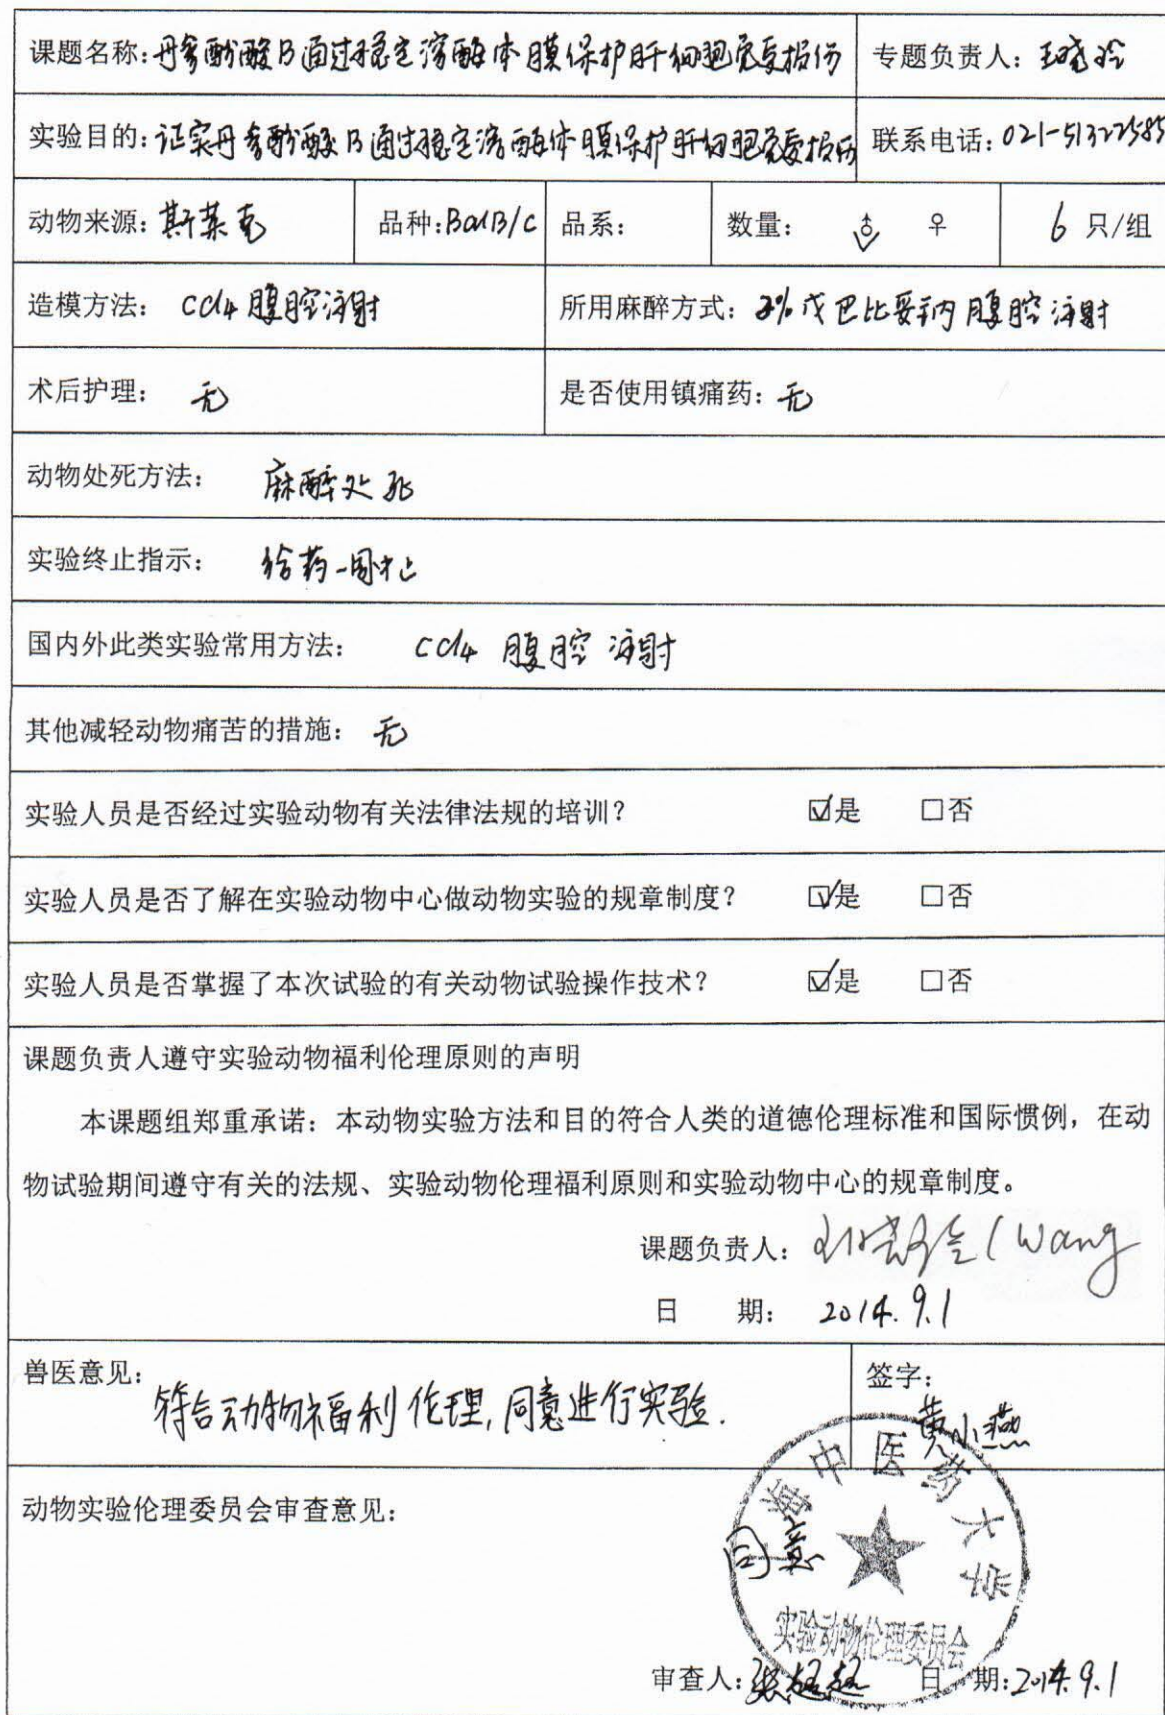 课题名称:丹参酚酸B通过稳定溶酶体膜保护肝细胞免受损伤 专题负责人:王晓玲
实验目的:证实丹参酚酸B通过稳定溶酶体膜保护肝细胞免受损伤 联系电话:021-51322585
动物来源:斯莱克 品种:BalB/c 品系: 数量: ♂ ♀ 6 只/组
造模方法: CCl4 腹腔注射 所用麻醉方式:2%戊巴比妥钠 腹腔注射
术后护理: 无 是否使用镇痛药:无
动物处死方法: 麻醉处死
实验终止指示: 给药一周止
国内外此类实验常用方法: CCl4 腹腔注射
其他减轻动物痛苦的措施: 无
实验人员是否经过实验动物有关法律法规的培训? ☑是 □否
实验人员是否了解在实验动物中心做动物实验的规章制度? ☑是 □否
实验人员是否掌握了本次试验的有关动物试验操作技术? ☑是 □否
课题负责人遵守实验动物福利伦理原则的声明
本课题组郑重承诺:本动物实验方法和目的符合人类的道德伦理标准和国际惯例,在动
物试验期间遵守有关的法规、实验动物伦理福利原则和实验动物中心的规章制度。
课题负责人: 王晓玲 (Wang
日 期: 2014.9.1
兽医意见: 签字:
符合动物福利伦理,同意进行实验. 黄小燕
动物实验伦理委员会审查意见:
上海中医药大学
同意
实验动物伦理委员会
审查人:张超超 日 期:2014.9.1